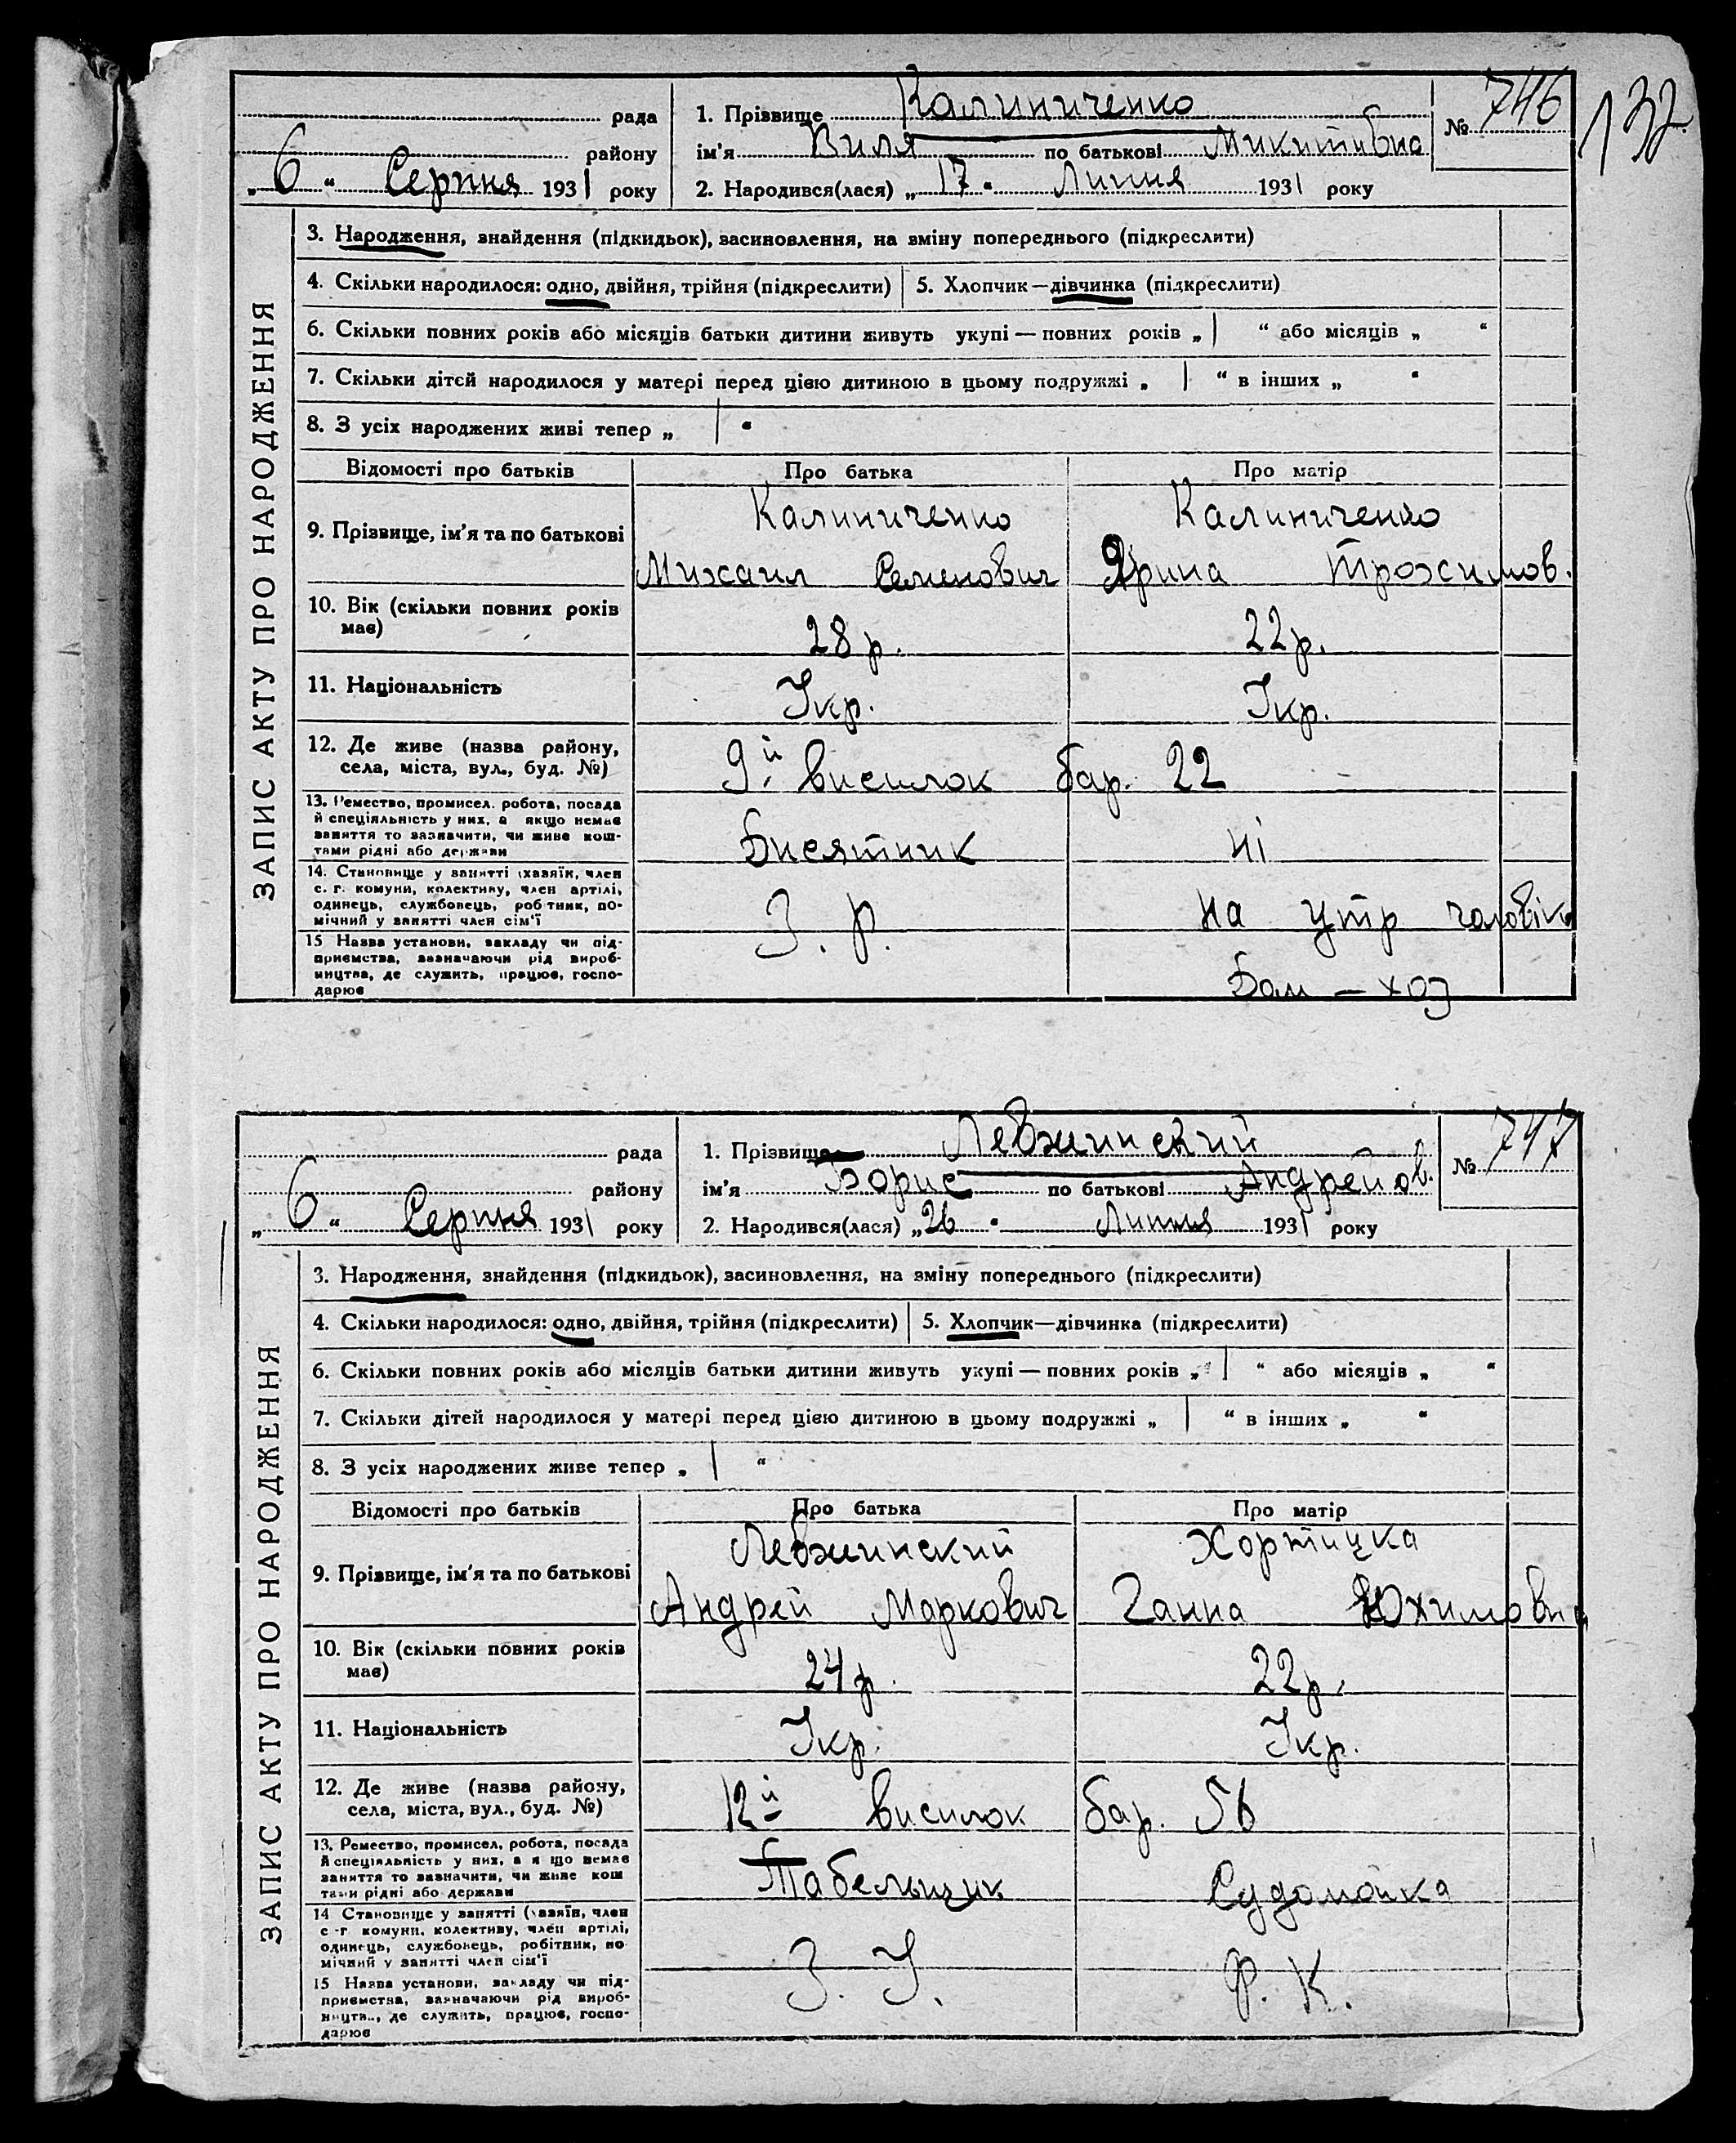 132
рада
районъу
„ 6 “ Серпня 1931 року
1. Прізвище Калиниченко
ім'я Виля по батькові Микитивна
№ 746
2. Народився(лася) „ 17 “ Липня 1931 року
ЗАПИС АКТУ ПРО НАРОДЖЕННЯ
3. Народження, знайдення (підкидьок), засиновлення, на зміну попереднього (підкреслити)
4. Скільки народилося: одно, двійня, трійня (підкреслити) 5. Хлопчик—дівчинка (підкреслити)
6. Скільки повних років або місяців батьки дитини живуть укупі — повних років „ | “ або місяців „ “
7. Скільки дітей народилося у матері перед цією дитиною в цьому подружжі „ | “ в інших „ “
8. З усіх народжених живі тепер „ | “
Відомості про батьків Про батька Про матір
9. Прізвище, ім'я та по батькові
Калиниченко Калиниченко
Михаил Семенович Ярина Трохимов.
10. Вік (скільки повних років
має)
28 р. 22 р.
11. Національність Укр. Укр.
12. Де живе (назва району,
села, міста, вул., буд. №)
9й висилок бар. 22
13. Ремество, промисел. робота, посада
й спеціяльність у них, а якщо немає
заняття то зазначити, чи живе кош-
тами рідні або держави
Дисятник ні
14. Становище у занятті (хазяїн, член
с. г. комуни, колективу, член артілі,
одинець, службовець, робітник, по-
мічний у занятті член сім'ї
З. Р. на утр чоловіка
15 Назва установи, закладу чи під-
приємства, зазначаючи рід вироб-
ництва, де служить, працює, госпо-
дарює
Дом — хоз
рада
району
„ 6 “ Серпня 1931 року
1. Прізвище Левжинский
ім'я Борис по батькові Андрейов.
№ 747
2. Народився(лася) „ 26 “ Липня 1931 року
ЗАПИС АКТУ ПРО НАРОДЖЕННЯ
3. Народження, знайдення (підкидьок), засиновлення, на зміну попереднього (підкреслити)
4. Скільки народилося: одно, двійня, трійня (підкреслити) 5. Хлопчик—дівчинка (підкреслити)
6. Скільки повних років або місяців батьки дитини живуть укупі — повних років „ | “ або місяців „ “
7. Скільки дітей народилося у матері перед цією дитиною в цьому подружжі „ | “ в інших „ “
8. З усіх народжених живе тепер „ | “
Відомості про батьків Про батька Про матір
9. Прізвище, ім'я та по батькові
Левжинский Хортицка
Андрей Маркович Ганна Юхимовн
10. Вік (скільки повних років
має)
24 р. 22 р.
11. Національність Укр. Укр.
12. Де живе (назва району,
села, міста, вул., буд. №)
12й висилок бар. 56
13. Ремество, промисел, робота, посада
й спеціяльність у них, а якщо немає
заняття то зазначити, чи живе кош
тами рідні або держави
Табельщик Судомойка
14 Становище у занятті (хазяїн, член
с-г комуни, колективу, член артілі,
одинець, службовець, робітник, по
мічний у занятті член сім'ї
15 Назва установи, закладу чи під-
приємства, зазначаючи рід вироб-
ництва, де служить, працює, госпо-
дарює
З. У. Ф. К.